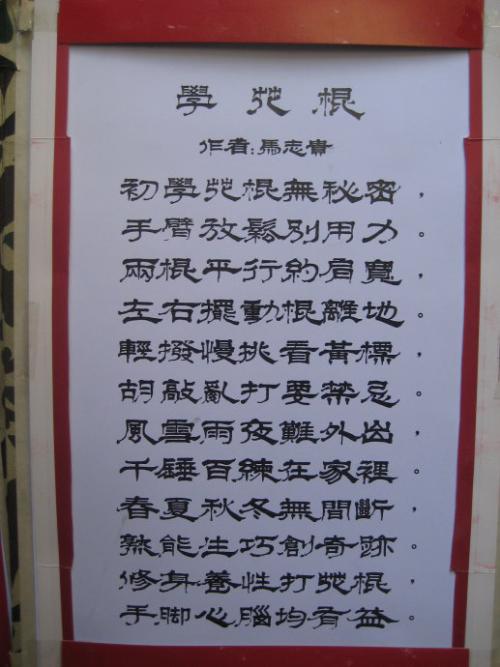 學花棍
作者:馬志貴
初學花棍無秘密,
手臂放鬆別用力。
兩棍平行約肩寬,
左右擺動棍離地。
輕撥慢挑看黃標,
胡敲亂打要禁忌。
風雪雨夜難外出,
千錘百練在家裡。
春夏秋冬無間斷,
熟能生巧創奇跡。
修身養性打花棍,
手腳心腦均有益。